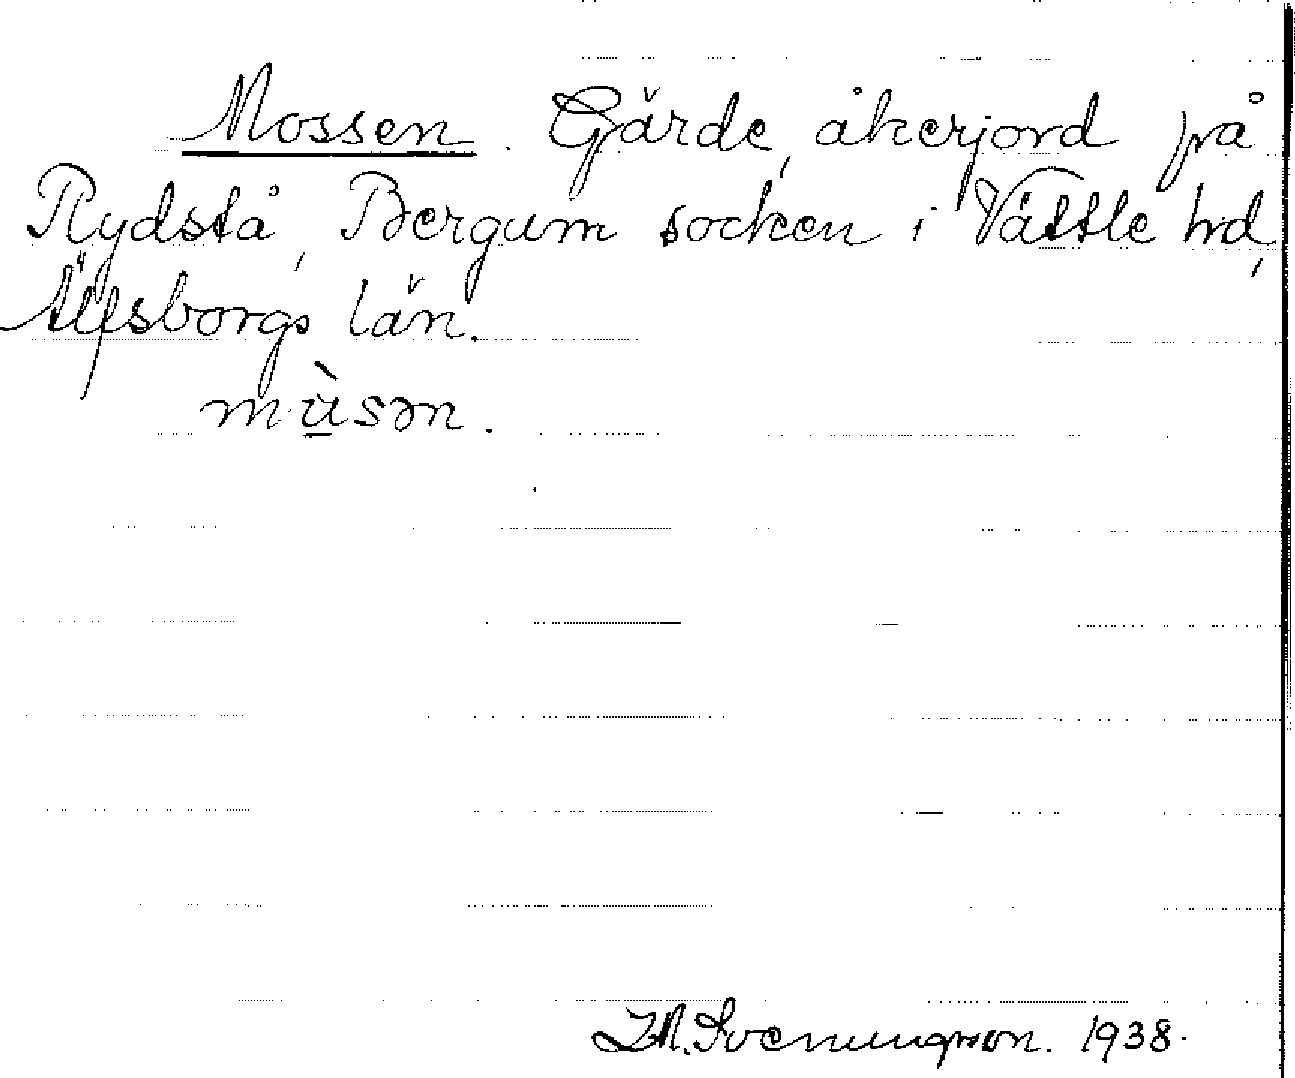 Mossen. Gärde, åkerjord på
Rydstå, Bergum socken i Vättle hd,
Älfsborgs län.
mùsən.
J.M. Svenungsson. 1938.